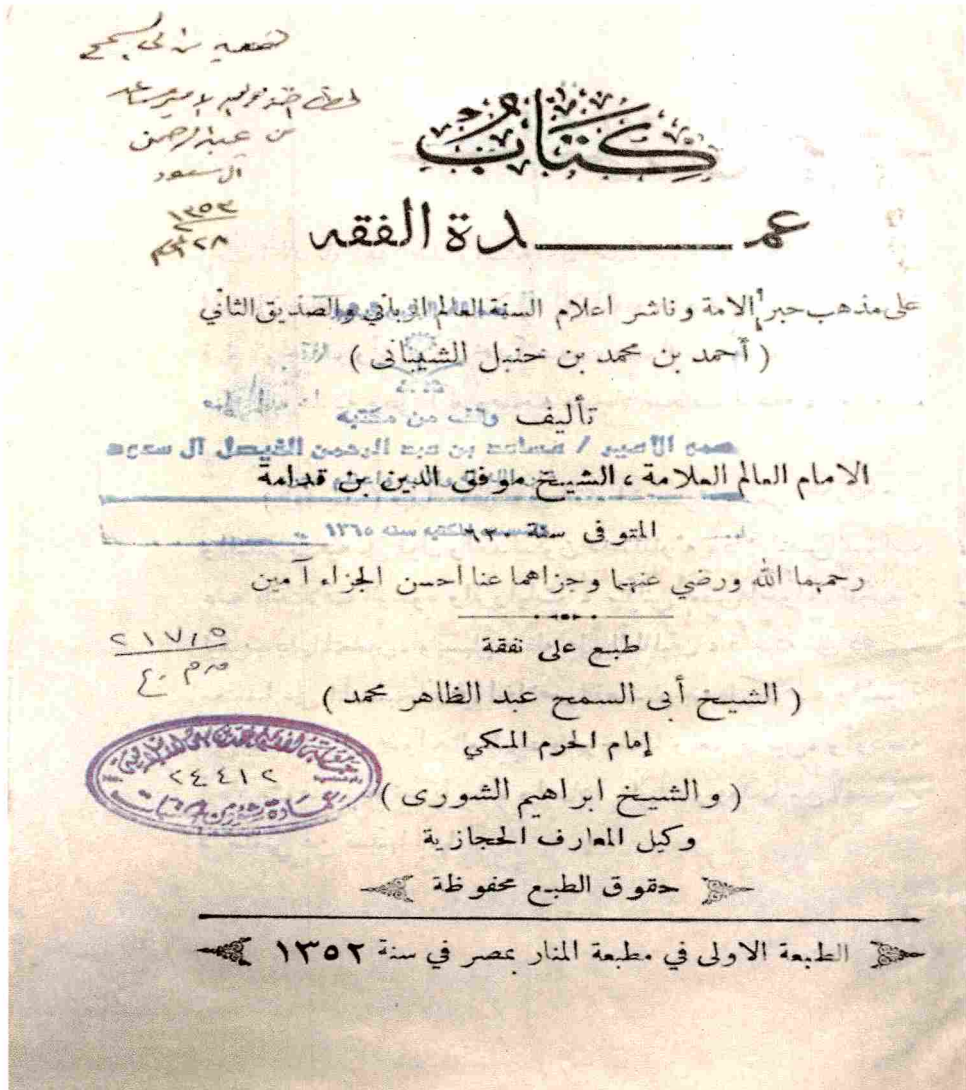 كتاب
عمـــدة الفقه
على مذهب حبر الامة وناشر اعلام السنة العالم الرباني والصديق الثاني
( أحمد بن محمد بن حنبل الشيبانى )
تأليف
وقف من مكتبة
سمو الأمير / مساعد بن عبد الرحمن الفيصل آل سعود
الامام العالم العلامة ، الشيخ موفق الدين بن قدامة
المتوفى سنة
المكتبه سنه ١٣٦٥
رحمهما الله ورضي عنهما وجزاهما عنا احسن الجزاء آمين
طبع على نفقة
( الشيخ أبى السمح عبد الظاهر محمد )
إمام الحرم المكي
( والشيخ ابراهيم الشورى )
وكيل المعارف الحجازية
حقوق الطبع محفوظة
الطبعة الاولى في مطبعة المنار بمصر في سنة ١٣٥٢
بن عبد الرحمن
آل سعود
١٣٥٣
٢١٧١٥
٢٤٤١٢